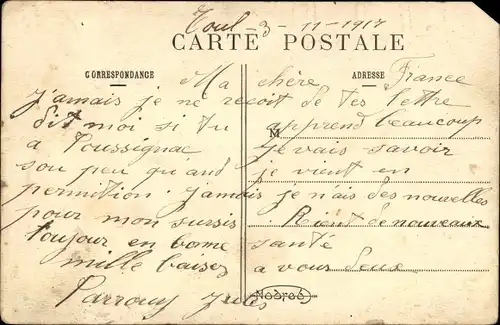 Toul 3-11-1917
CARTE POSTALE
CORRESPONDANCE
ADRESSE
Ma chère France
j'amais je ne reçoit de tes lettre
dit moi si tu apprend beaucoup
M
a Poussignac je vais savoir
sou peu qu'and je vient en
permition. jamais je n'ais des nouvelles
pour mon sursis. Rient de nouveaux
toujour en bonne santé
mille baisez a vous deux
Parrouy Jules